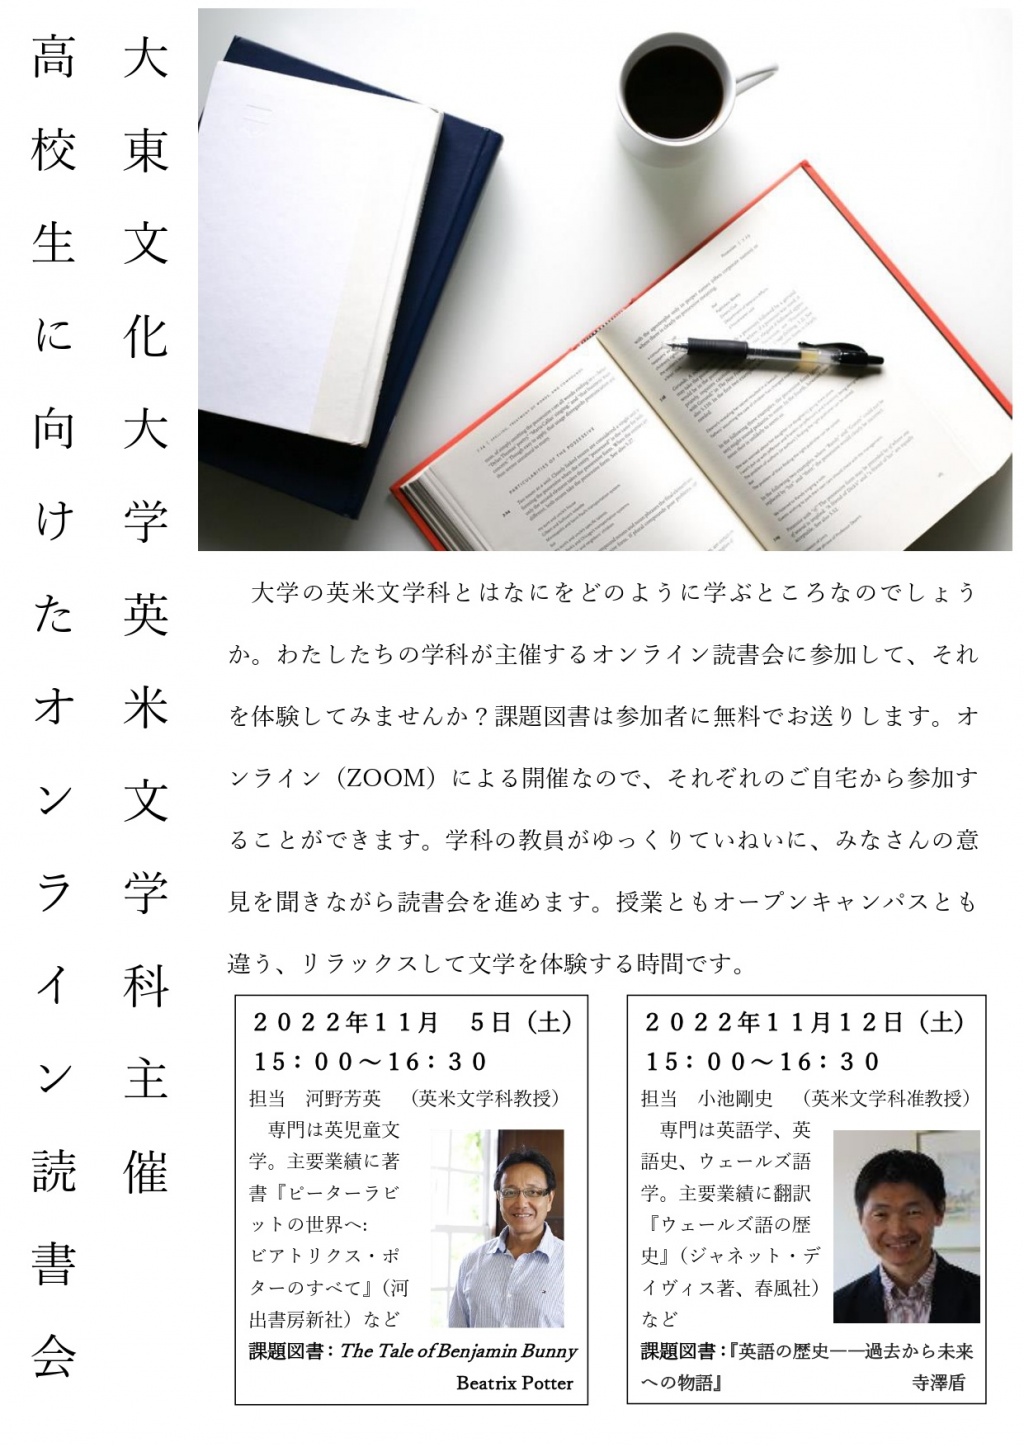 大東文化大学英米文学科主催
高校生に向けたオンライン読書会
PARTICULARITIES OF THE POSSESSIVE
大学の英米文学科とはなにをどのように学ぶところなのでしょう
か。わたしたちの学科が主催するオンライン読書会に参加して、それ
を体験してみませんか？課題図書は参加者に無料でお送りします。オ
ンライン（ZOOM）による開催なので、それぞれのご自宅から参加す
ることができます。学科の教員がゆっくりていねいに、みなさんの意
見を聞きながら読書会を進めます。授業ともオープンキャンパスとも
違う、リラックスして文学を体験する時間です。
２０２２年１１月　５日（土）
１５：００～１６：３０
担当　河野芳英　（英米文学科教授）
専門は英児童文
学。主要業績に著
書『ピーターラビ
ットの世界へ:
ビアトリクス・ポ
ターのすべて』（河
出書房新社）など
課題図書：The Tale of Benjamin Bunny
Beatrix Potter
２０２２年１１月１２日（土）
１５：００～１６：３０
担当　小池剛史　（英米文学科准教授）
専門は英語学、英
語史、ウェールズ語
学。主要業績に翻訳
『ウェールズ語の歴
史』（ジャネット・デ
イヴィス著、春風社）
など
課題図書：『英語の歴史――過去から未来
への物語』　寺澤盾